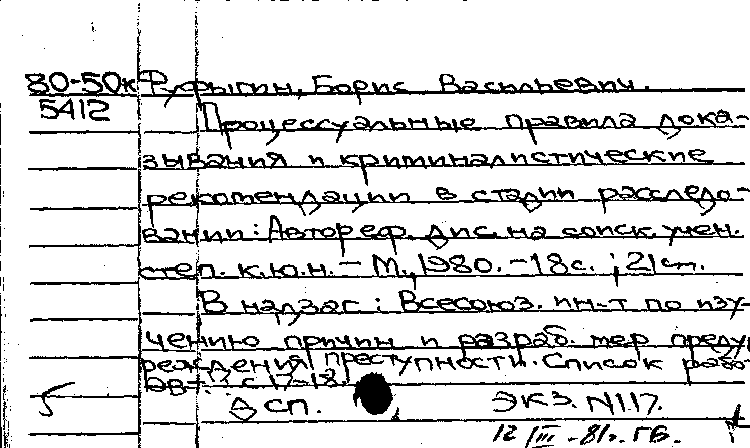 80-50к Фуфыгин, Борис Васильевич.
5412 Процессуальные правила дока-
зывания и криминалистические
рекомендации в стадии расследо-
вании: Автореф. дис. на соиск. учен.
степ. к.ю.н. – М., 1980. – 18с. ; 21 см.
В надзаг: Всесоюз. ин-т по изу-
чению причин и разраб. мер преду
реждения преступности. Список работ
авт.: с. 17-18.
ДСП. ЭКЗ. N117.
12/III-81г. ГБ.